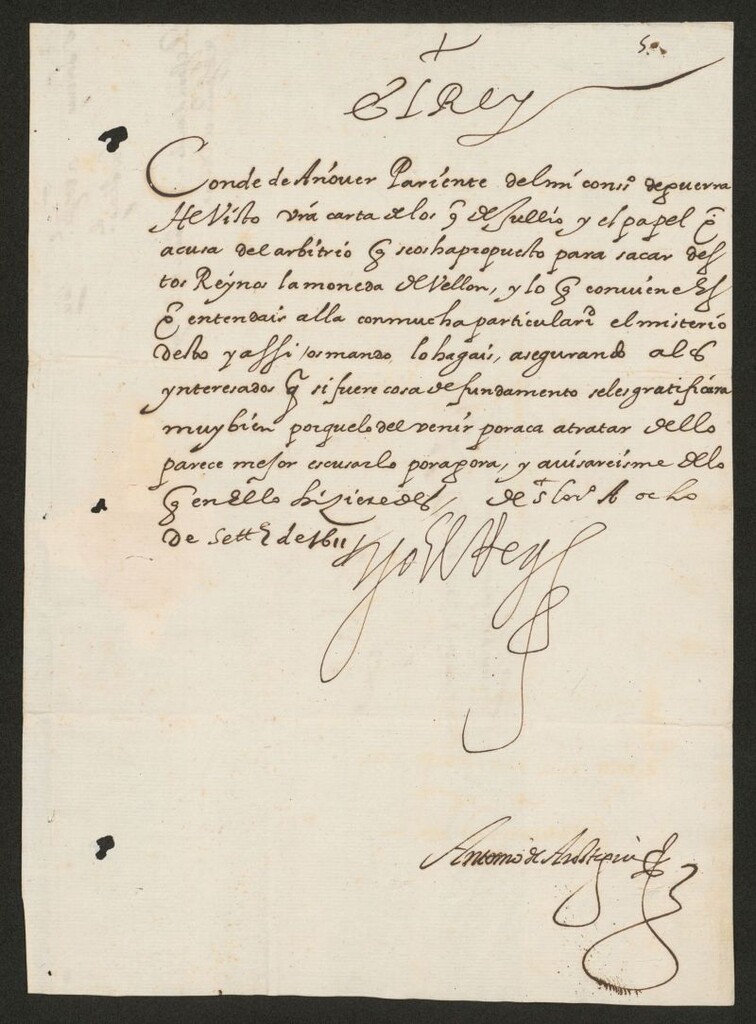 5.
El Rey
Conde de Añover Pariente del mi cons.º de guerra
He Visto vrã carta de los 9 de Jullio y el papel q̃
acusa del arbitrio q̃ se os ha propuesto para sacar des
tos Reynos la moneda de Vellon, y lo q̃ conviene es
q̃ entendais alla con mucha particularᵈ el misterio
desto y assi os mando lo hagais, asegurando a los
ynteresados q̃ si fuere cosa de fundamento se les gratificara
muy bien porque lo del venir por aca a tratar dello
parece mejor escusarlo por agora, y avisareisme de lo
q̃ en Ello hizieredes, de S. Lorᵒ A ocho
de Settᵉ de 1611
Yo El Rey
Antonio de Arostegui